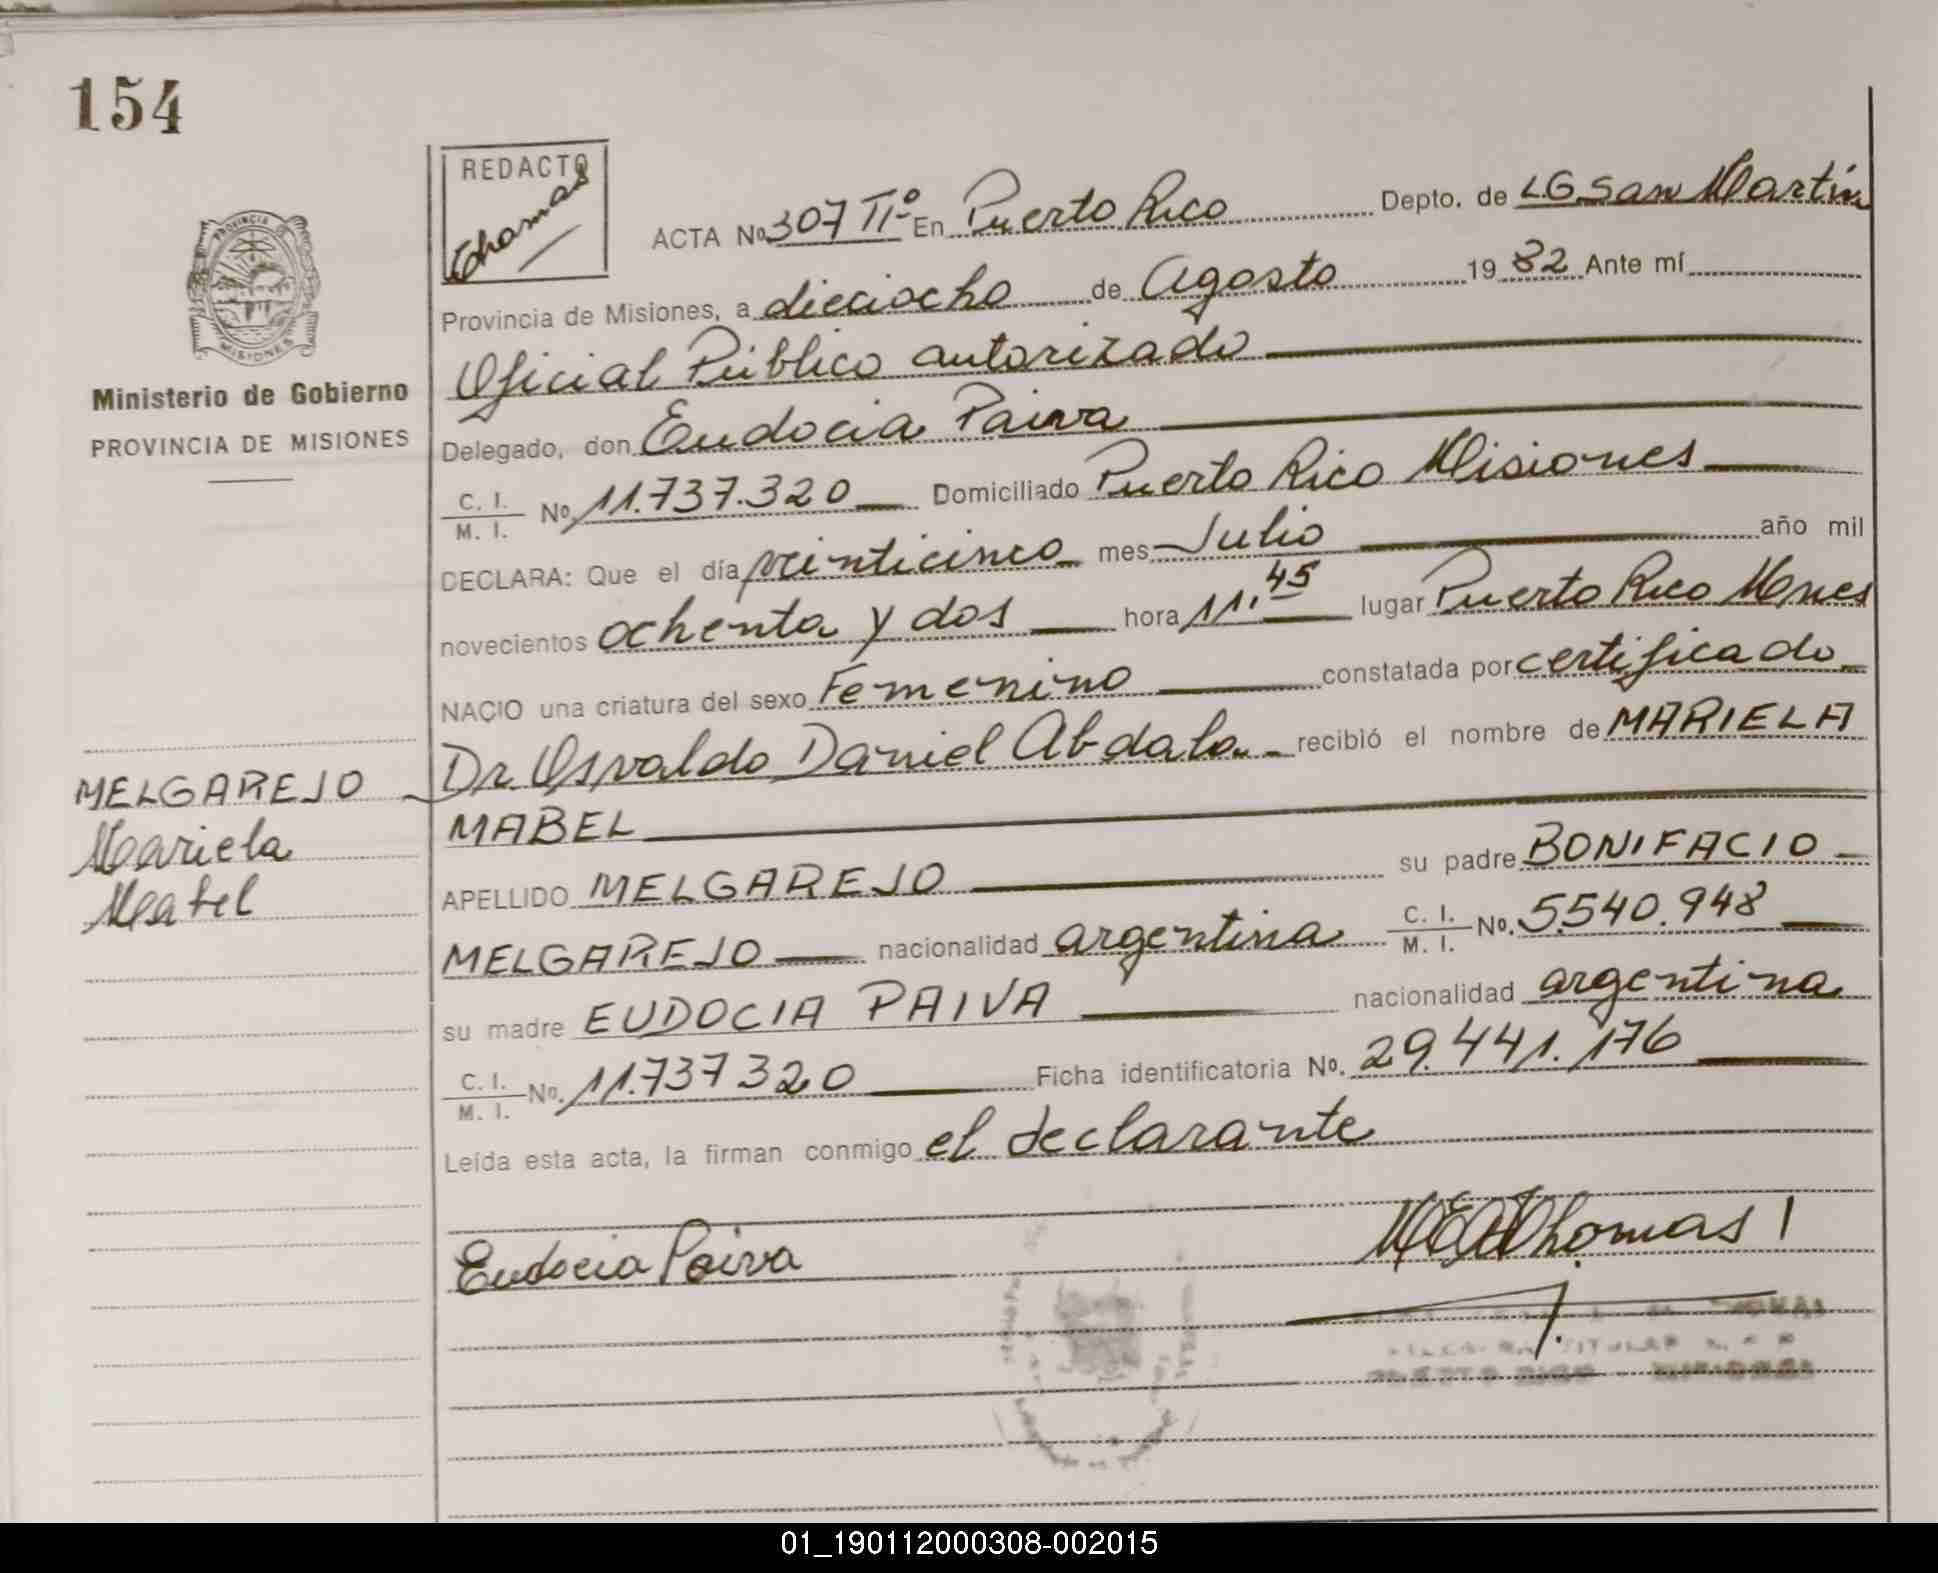 154
REDACTO
Thomas
PROVINCIA
MISIONES
Ministerio de Gobierno
PROVINCIA DE MISIONES
ACTA Nº 307 TIº En Puerto Rico Depto. de L.G.San Martín
Provincia de Misiones, a dieciocho de Agosto 1982 Ante mí
Oficial Público autorizado
Delegado, don Eudocia Paiva
C. I. M. I. Nº 11.737.320 Domiciliado Puerto Rico Misiones
DECLARA: Que el día veinticinco mes Julio año mil
novecientos ochenta y dos hora 11.45 lugar Puerto Rico Mnes
NACIO una criatura del sexo Femenino constatada por certificado
Dr. Osvaldo Daniel Abdala recibió el nombre de MARIELA
MABEL
APELLIDO MELGAREJO su padre BONIFACIO
MELGAREJO nacionalidad argentina C. I. M. I. Nº. 5.540.948
su madre EUDOCIA PAIVA nacionalidad argentina
C. I. M. I. Nº. 11.737320 Ficha identificatoria Nº. 29.441.176
Leída esta acta, la firman conmigo el declarante
MELGAREJO
Mariela
Mabel
Eudocia Paiva
Thomas
01_190112000308-002015